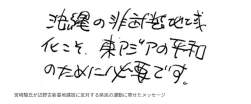 沖縄の非武装地域
化こそ、東アジアの平和
のために必要です。
宮崎駿氏が辺野古新基地建設に反対する県民の運動に寄せたメッセージ